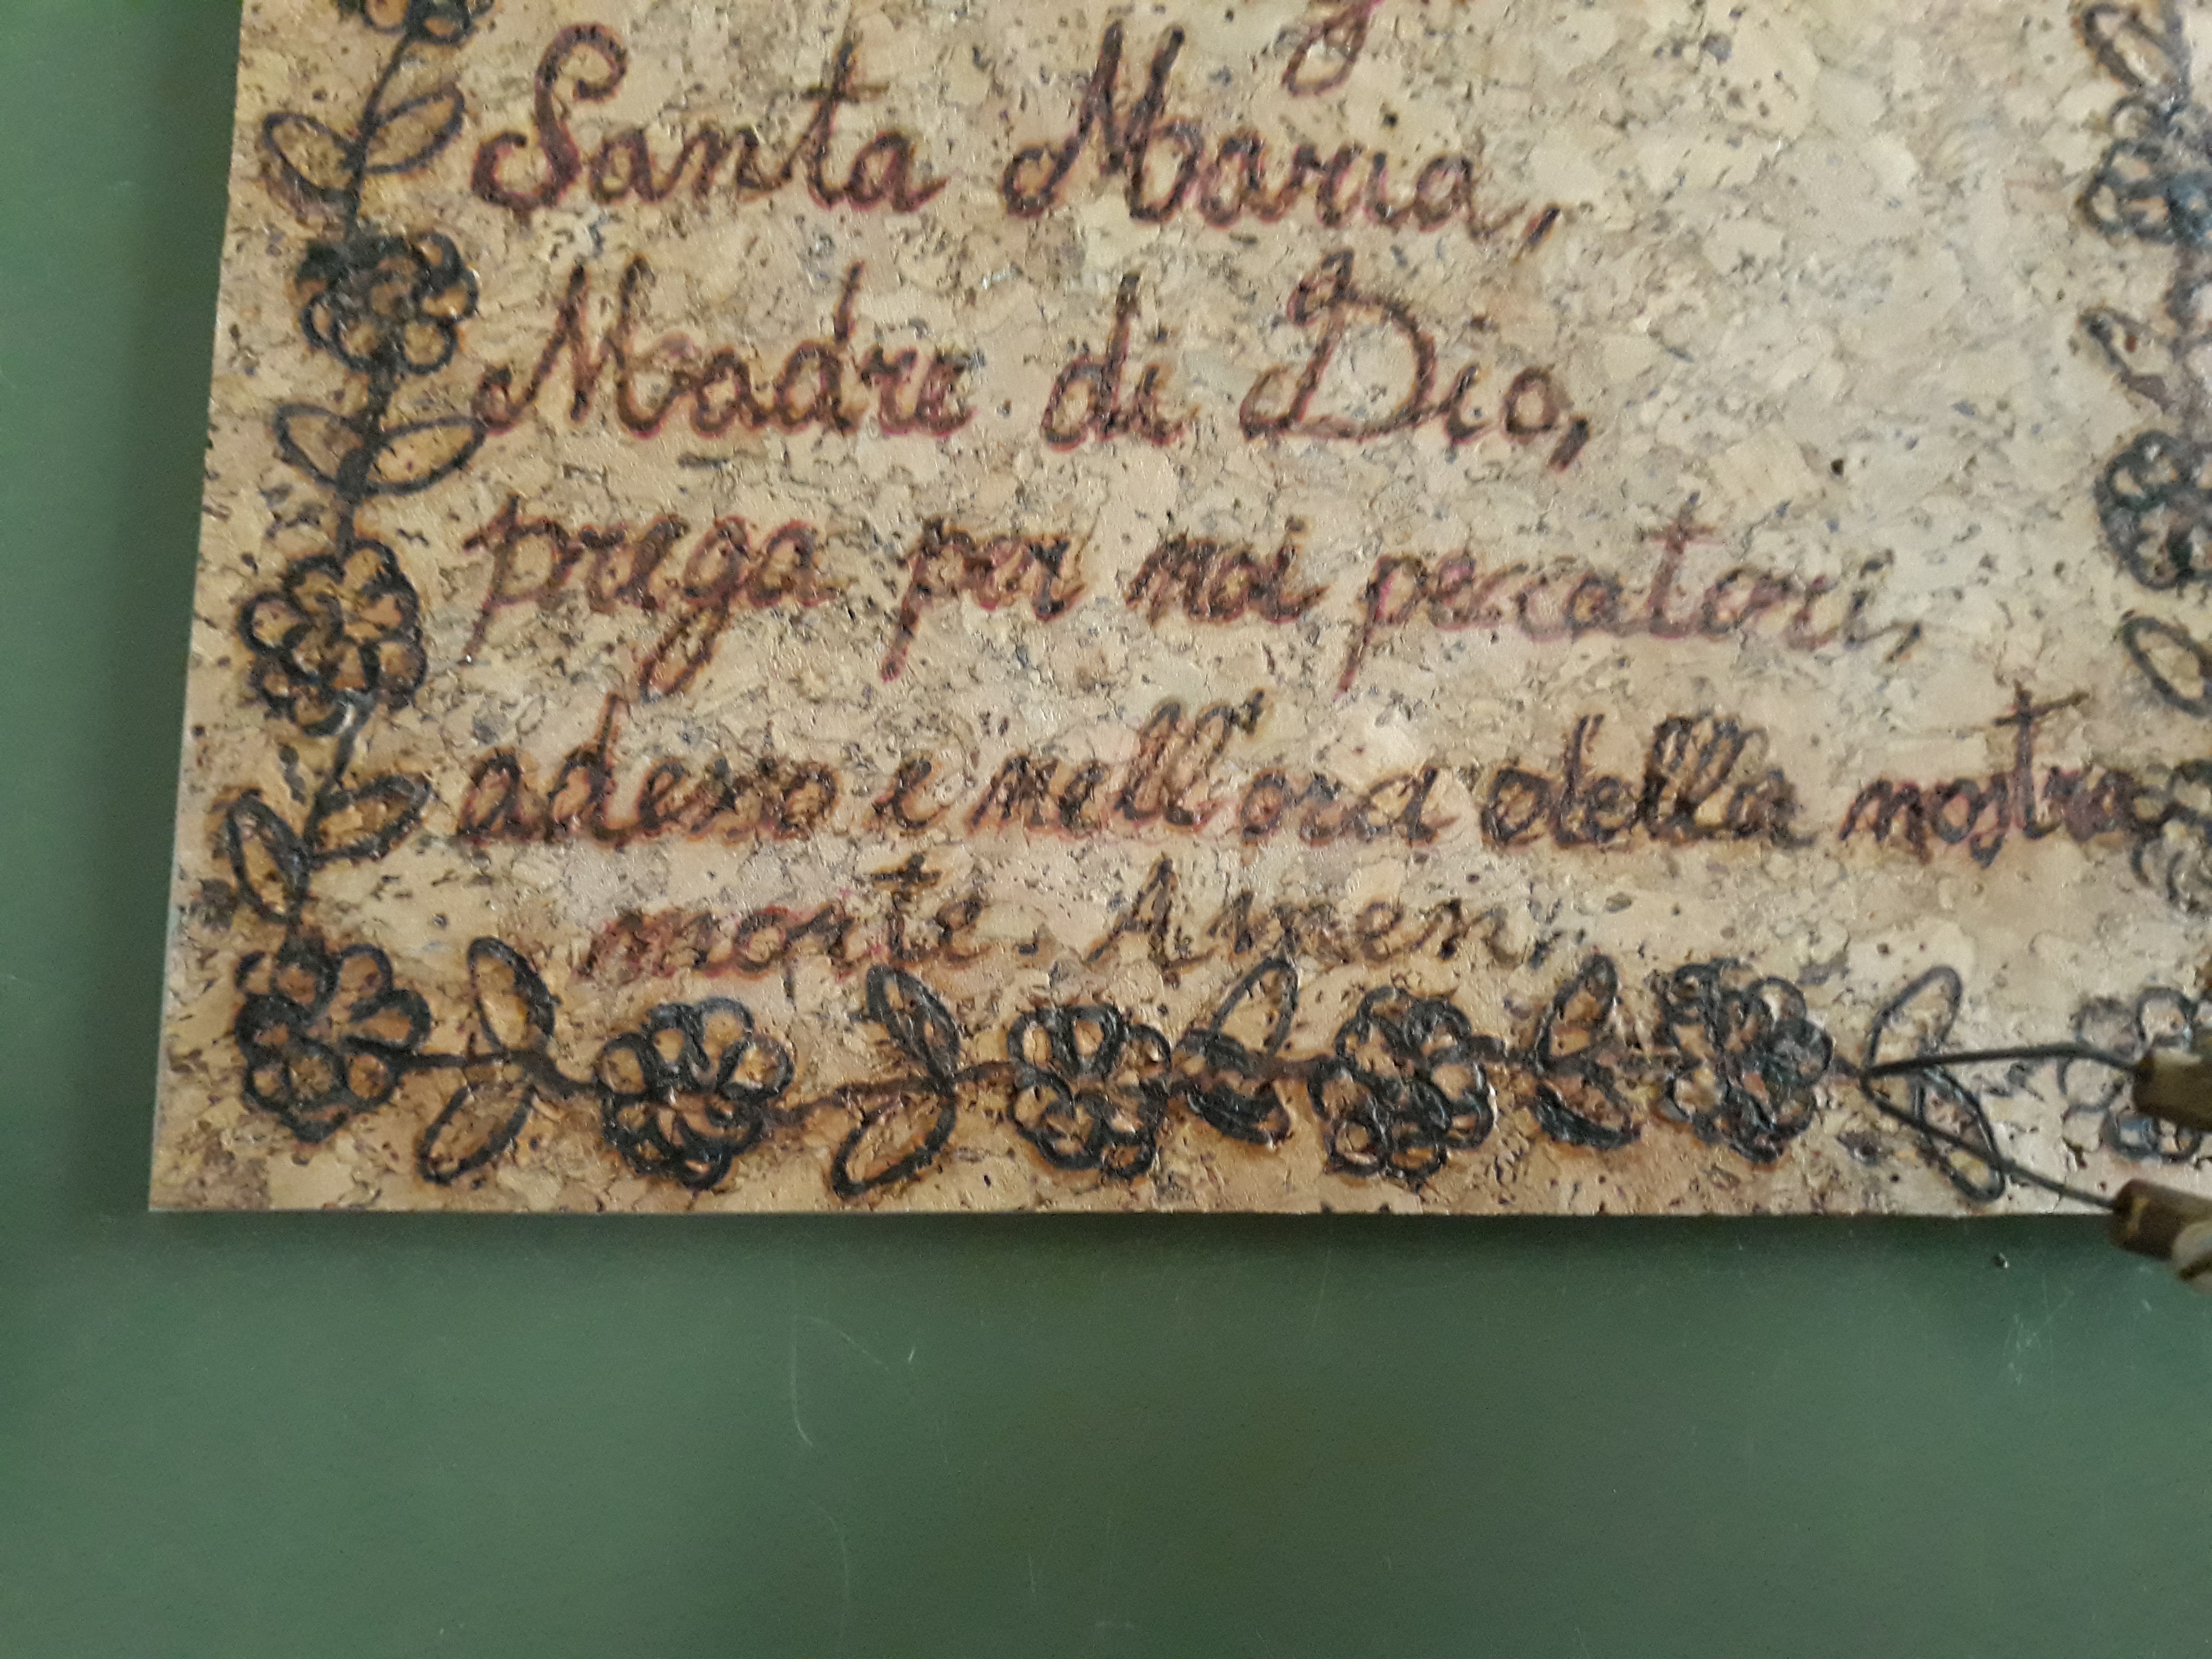 Santa Maria,
Madre di Dio,
prega per noi peccatori,
adesso e nell'ora della nostra
morte. Amen.